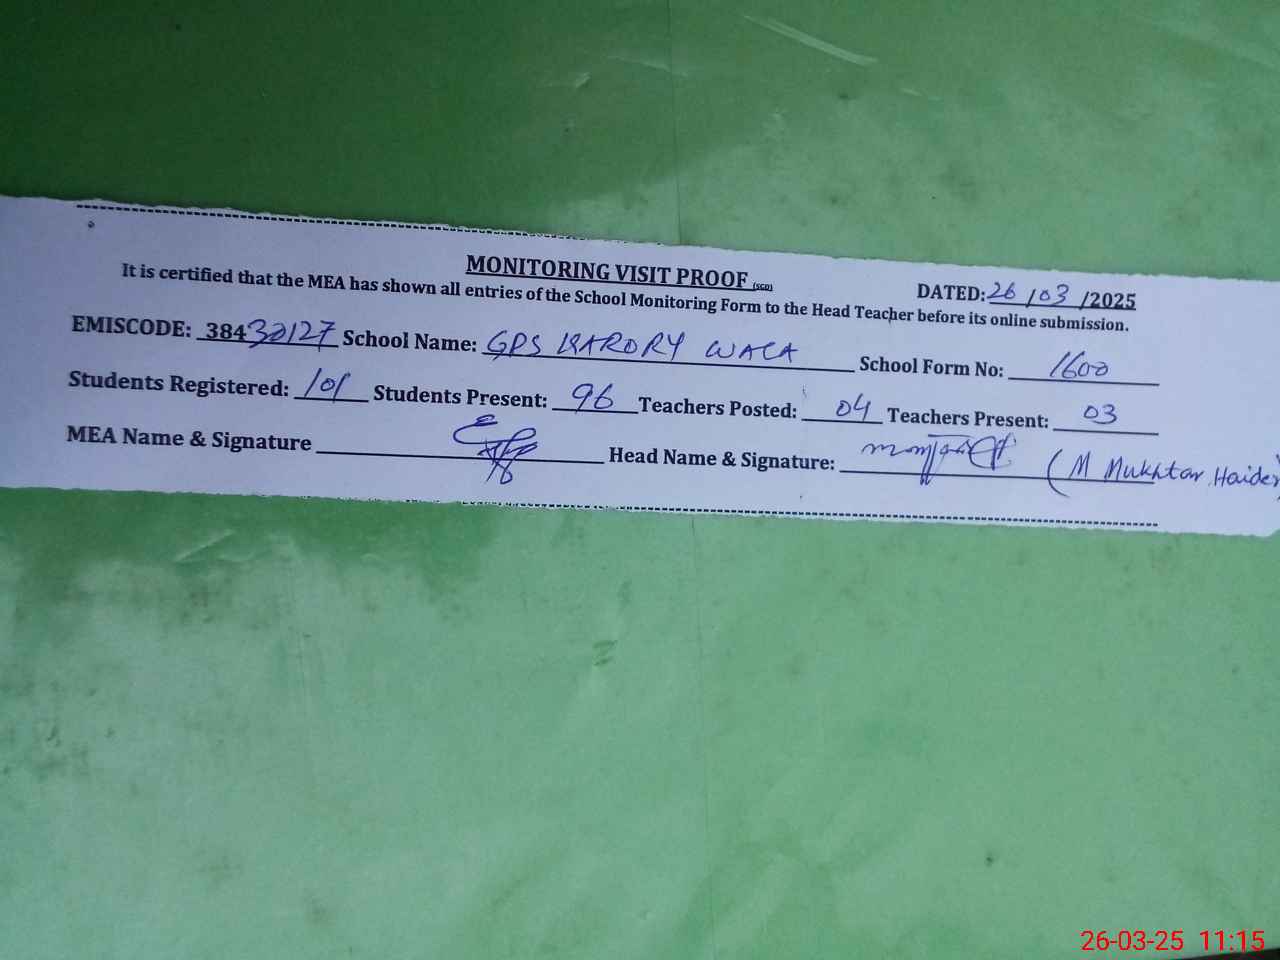 MONITORING VISIT PROOF (SGD) DATED: 26/03/2025
It is certified that the MEA has shown all entries of the School Monitoring Form to the Head Teacher before its online submission.
EMISCODE: 38430127 School Name: GPS KARORY WALA School Form No: 1600
Students Registered: 101 Students Present: 96 Teachers Posted: 04 Teachers Present: 03
MEA Name & Signature Head Name & Signature: (M Mukhtar Haider)
26-03-25 11:15